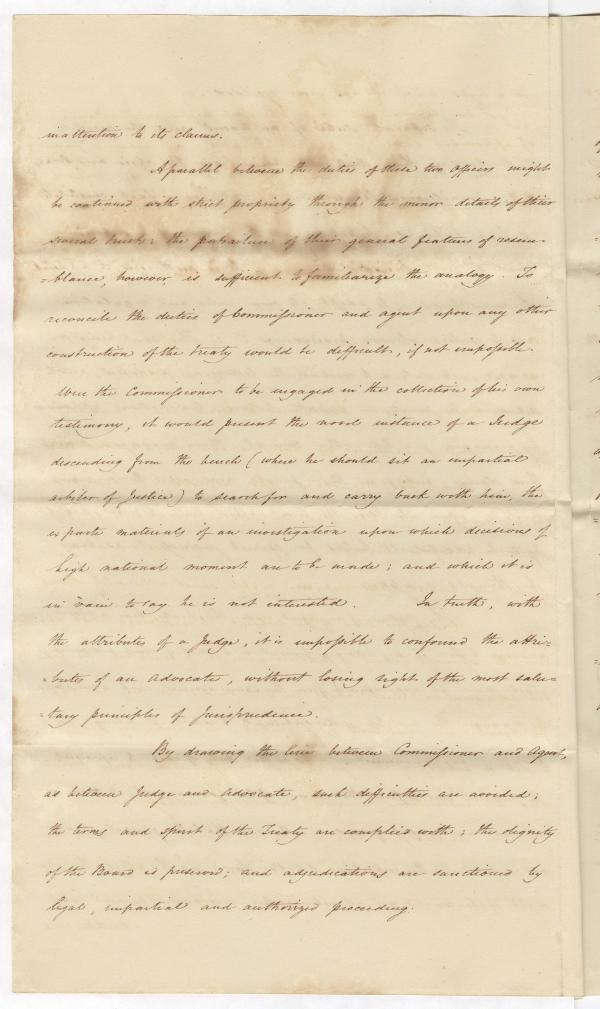 inattention to its claims.
A parallel between the duties of these two officers might
be continued with strict propriety through the minor details of their
several trusts: the portraiture of their general features of resem-
=blance, however, is sufficient to familiarize the analogy. To
reconcile the duties of Commissioner and agent upon any other
construction of the treaty would be difficult, if not impossible.
Were the Commissioner to be engaged in the collection of his own
testimony, it would present the novel instance of a Judge
descending from the bench (where he should sit an impartial
arbiter of Justice) to search for and carry back with him, the
ex parte materials of an investigation upon which decisions of
high national moment are to be made; and which it is
in vain to say he is not interested. In truth, with
the attributes of a Judge, it is impossible to confound the attri=
=butes of an Advocate, without losing sight of the most salu=
=tary principles of Jurisprudence.
By drawing the line between Commissioner and Agent,
as between Judge and Advocate, such difficulties are avoided;
the terms and spirit of the Treaty are complied with; the dignity
of the Board is preserved; and adjudications are sanctioned by
legal, impartial and authorized proceeding.